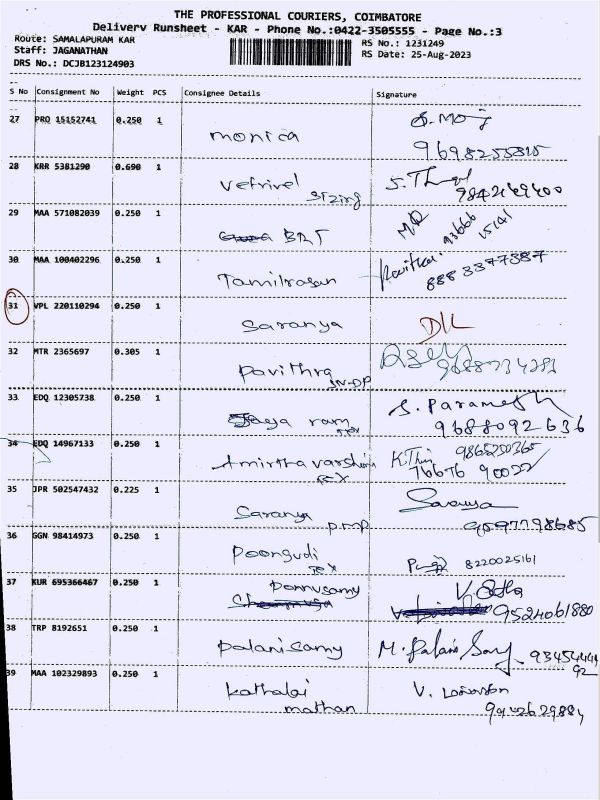 THE PROFESSIONAL COURIERS, COIMBATORE
Delivery Runsheet - KAR - Phone No.:0422-3505555 - Page No.:3
Route: SAMALAPURAM KAR
RS No.: 1231249
Staff: JAGANATHAN
RS Date: 25-Aug-2023
DRS No.: DCJB123124903
S No Consignment No Weight PCS Consignee Details Signature
27 PRO 15152741 0.250 1
monica
28 KRR 5381290 0.690 1
Vetrivel
sizing
9842169400
29 MAA 571082039 0.250 1
BRT
93666
15141
30 MAA 100402296 0.250 1
Tamilrasan
8883377387
31 VPL 220110294 0.250 1
Saranya
D/L
32 MTR 2365697 0.305 1
Pavithra
33 EDQ 12305738 0.250 1
Jaya ram
Tex
S. Paramesh
9688092636
34 EDQ 14967133 0.250 1
Amirthavarshini
Tex
9865250365
76676 90022
35 JPR 502547432 0.225 1
Saranya
P.m.p
Saranya
9597798685
36 GGN 98414973 0.250 1
Poongudi
Tex
8220025161
37 KUR 695366467 0.250 1
Ponnusamy
9524061880
38 TRP 8192651 0.250 1
Palanisamy
M. Palani Samy
93454444
92
39 MAA 102329893 0.250 1
Kathalai
mathan